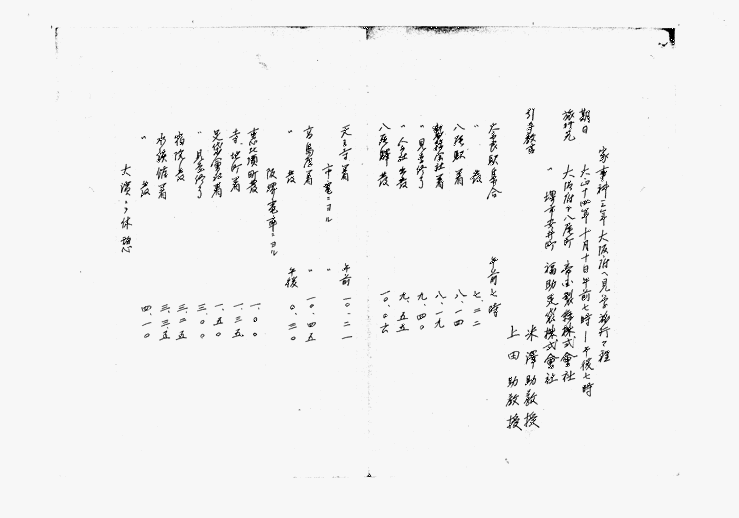 家事科三年大阪府へ見学旅行日程
期日 大正十四年十月十日午前七時—午後七時
旅行先 大阪府下八尾町 帝国製絲株式會社
〃 堺市安井町 福助足袋株式會社
引率教官 米澤助教授
上田助教授
奈良駅集合 午前七時
〃 發 七.二二
八尾駅着 八.一四
製絲会社着 八.一九
〃 見学終了 九.四〇
〃 会社出發 九.五五
八尾驛發 一〇.〇六
天王寺着 午前 一〇.二一
市電ニヨル
着 〃 一〇.四五
〃 發 午後 〇.三〇
阪堺電車ニヨル
惠比須町發 一.〇〇
寺地町着 一.三五
足袋會社着 一.五〇
〃 見学終了 三.〇〇
發 三.二五
水族館着 三.三五
〃 發 四.一〇
大濱ニテ休憩